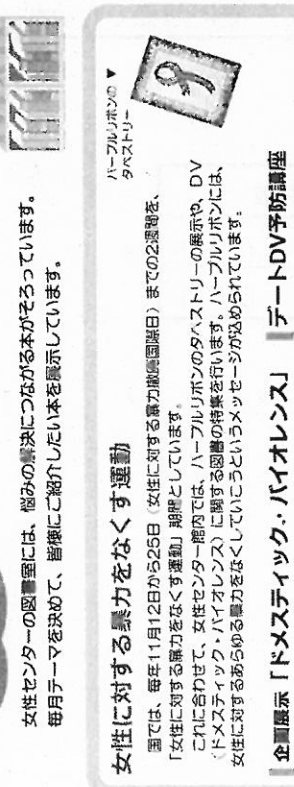 女性センターの図書室には、悩みの解決につながる本がそろっています。
毎月テーマを決めて、皆様にご紹介したい本を展示しています。
女性に対する暴力をなくす運動
国では、毎年11月12日から25日(女性に対する暴力撤廃国際日)までの2週間を、
「女性に対する暴力をなくす運動」期間としています。
これに合わせて、女性センター館内では、パープルリボンのタペストリーの展示や、DV
(ドメスティック・バイオレンス)に関する図書の特集を行います。パープルリボンには、
女性に対するあらゆる暴力をなくしていこうというメッセージが込められています。
パープルリボンの▼
タペストリー
企画展示「ドメスティック・バイオレンス」
デートDV予防講座